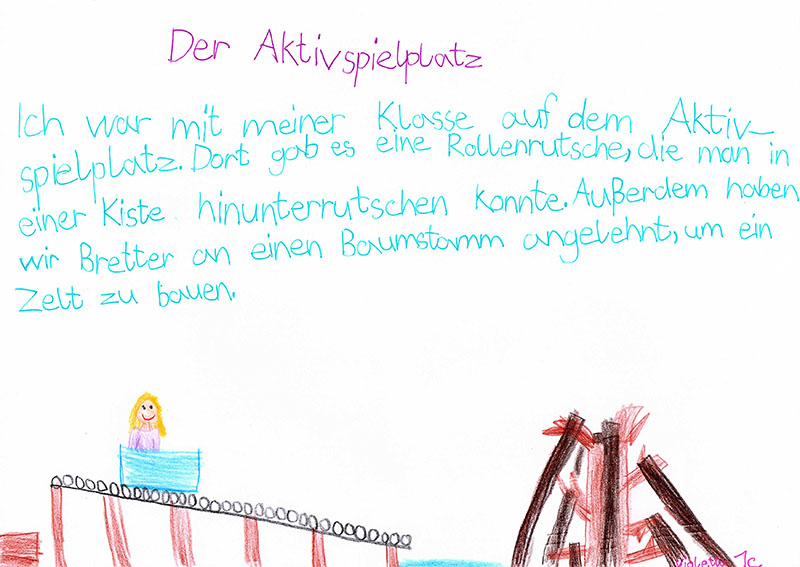 Der Aktivspielplatz
Ich war mit meiner Klasse auf dem Aktiv-
spielplatz. Dort gab es eine Rollenrutsche, die man in
einer Kiste hinunterrutschen konnte. Außerdem haben
wir Bretter an einen Baumstamm angelehnt, um ein
Zelt zu bauen.
1c